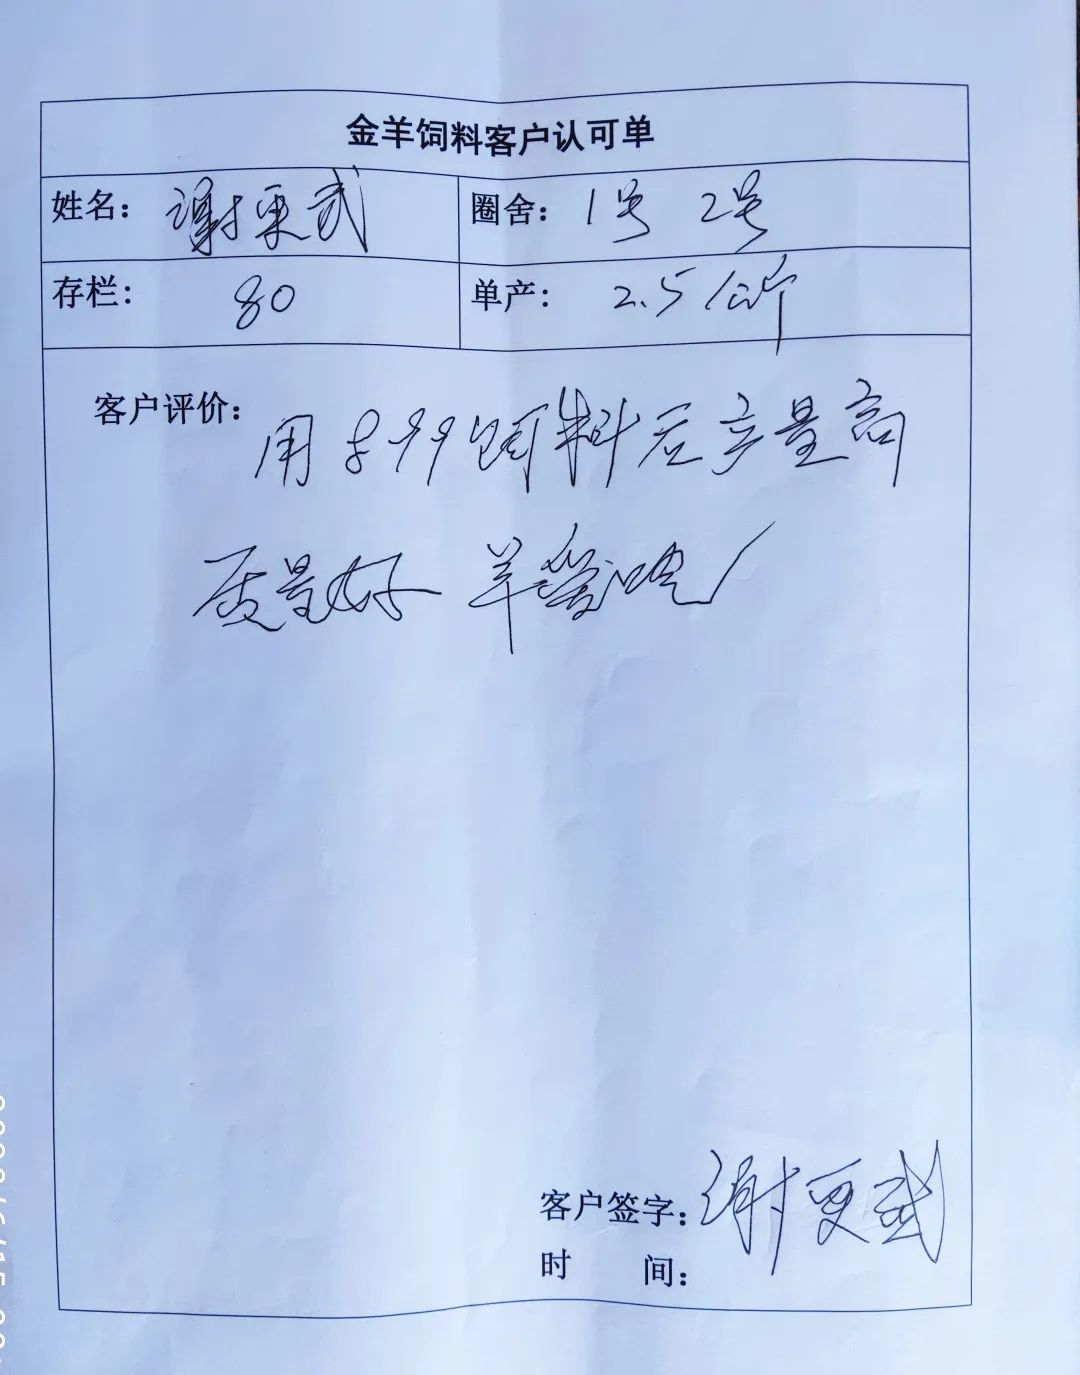 金羊饲料客户认可单
姓名： 谢更武 圈舍： 1号 2号
存栏： 80 单产： 2.5公斤
客户评价： 用899饲料后产量高
质量好 羊爱吃
客户签字： 谢更武
时 间：